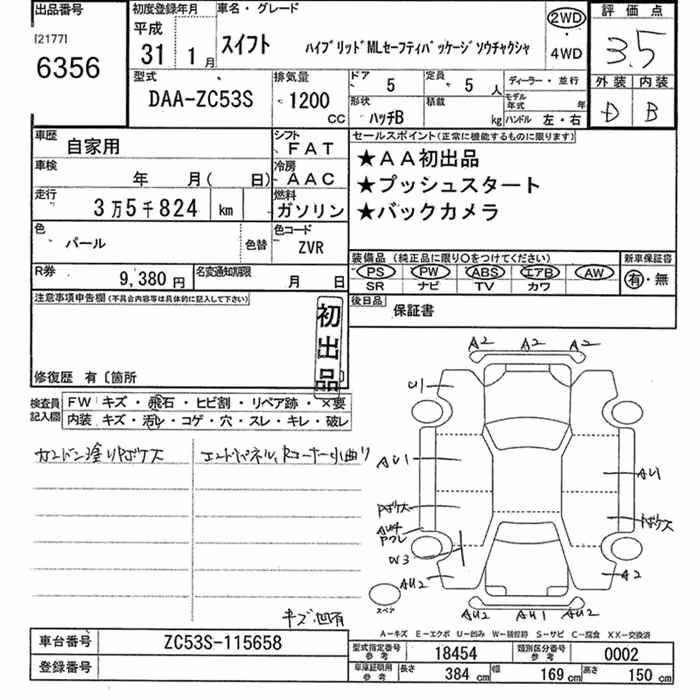 出品番号
[2177]
6356
初度登録年月
平成
31年 1月
車名・グレード
スイフト ハイブリッドMLセーフティパッケージソウチャクシャ
2WD
・
4WD
評価点
3.5
外装 内装
D B
型式
DAA-ZC53S
排気量
1200
CC
ドア 5
定員 5人
ディーラー・並行
形状 ハッチB
積載 kg
モデル年式 年
ハンドル 左・右
車歴 自家用
シフト FAT
車検 年 月( 日)
冷房 AAC
走行 3万5千824 km
燃料 ガソリン
色 パール
色替
色コード ZVR
R券 9,380円
名変通知期限 月 日
セールスポイント(正常に機能するものに限ります)
★AA初出品
★プッシュスタート
★バックカメラ
装備品 (純正品に限り○をつけてください)
PS PW ABS エアB AW
SR ナビ TV カワ
新車保証書
有・無
後日品 保証書
注意事項申告欄(不具合内容等は具体的に記入して下さい)
初出品
修復歴 有〔箇所
検査員記入欄
FW キズ・飛石・ヒビ割・リペア跡・×要
内装 キズ・汚レ・コゲ・穴・スレ・キレ・破レ
エンドパネル、Rコーナー小曲り
キズ、凹有
A2 A2 A2
U1
AU1
AU1
W3
AU2
A2
AU2 AU1 AU2
スペア
A―キズ E―エクボ U―凹み W―補修跡 S―サビ C―腐食 XX―交換済
車台番号 ZC53S-115658
登録番号
型式指定番号 参考 18454
類別区分番号 参考 0002
車庫証明用 参考 長さ 384 cm 幅 169 cm 高さ 150 cm